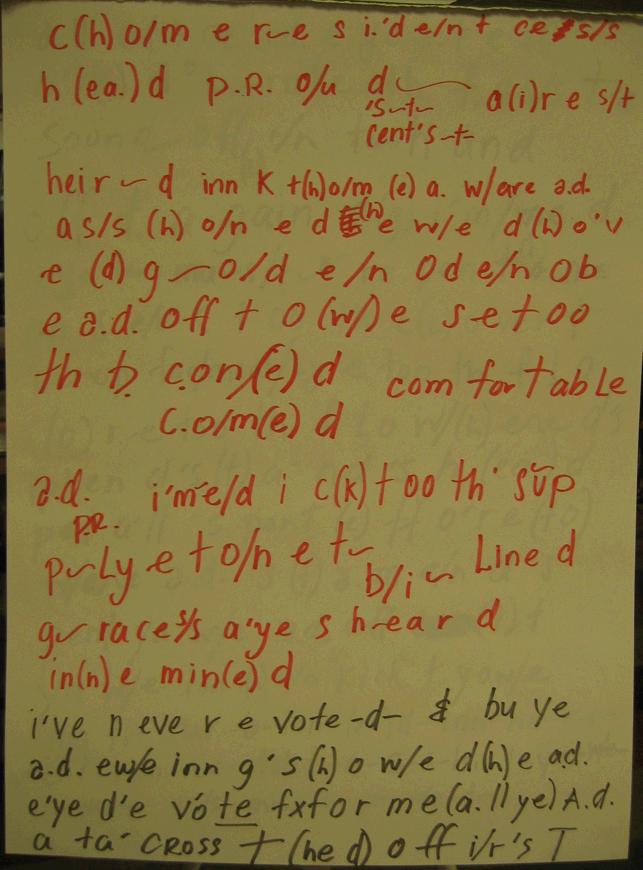 c(h) o/m e r~e s i.'d e/n t ce s/s
h (ea.) d p.R. o/u d~ a(i)r e s/t
's~t~
cent's~t~
heir~d inn K t(h)o/m (e) a. w/are a.d.
a s/s (h) o/n e d (h)e w/e d(h)o'v
e (d) g~o/d e/n O d e/n o b
e a.d. off t o(w/)e s e t o o
th b. c.on/(e) d com for table
c.o/m(e) d
a.d. i'm'e/d i c(k) t oo th' sŭp
P.R.
p~Ly e t o/n e t~ b/i~ Line d
g~race s/s a'ye s h~ear d
in(n) e min(e) d
i've n eve r e vote-d- & bu ye
a.d. ew/e inn g's(h)o w/e d(h)e a.d.
e'ye d'e vo'te fxfor me(a.llye) A.d.
a ta' CROSS T (he d) o ff i/r's T